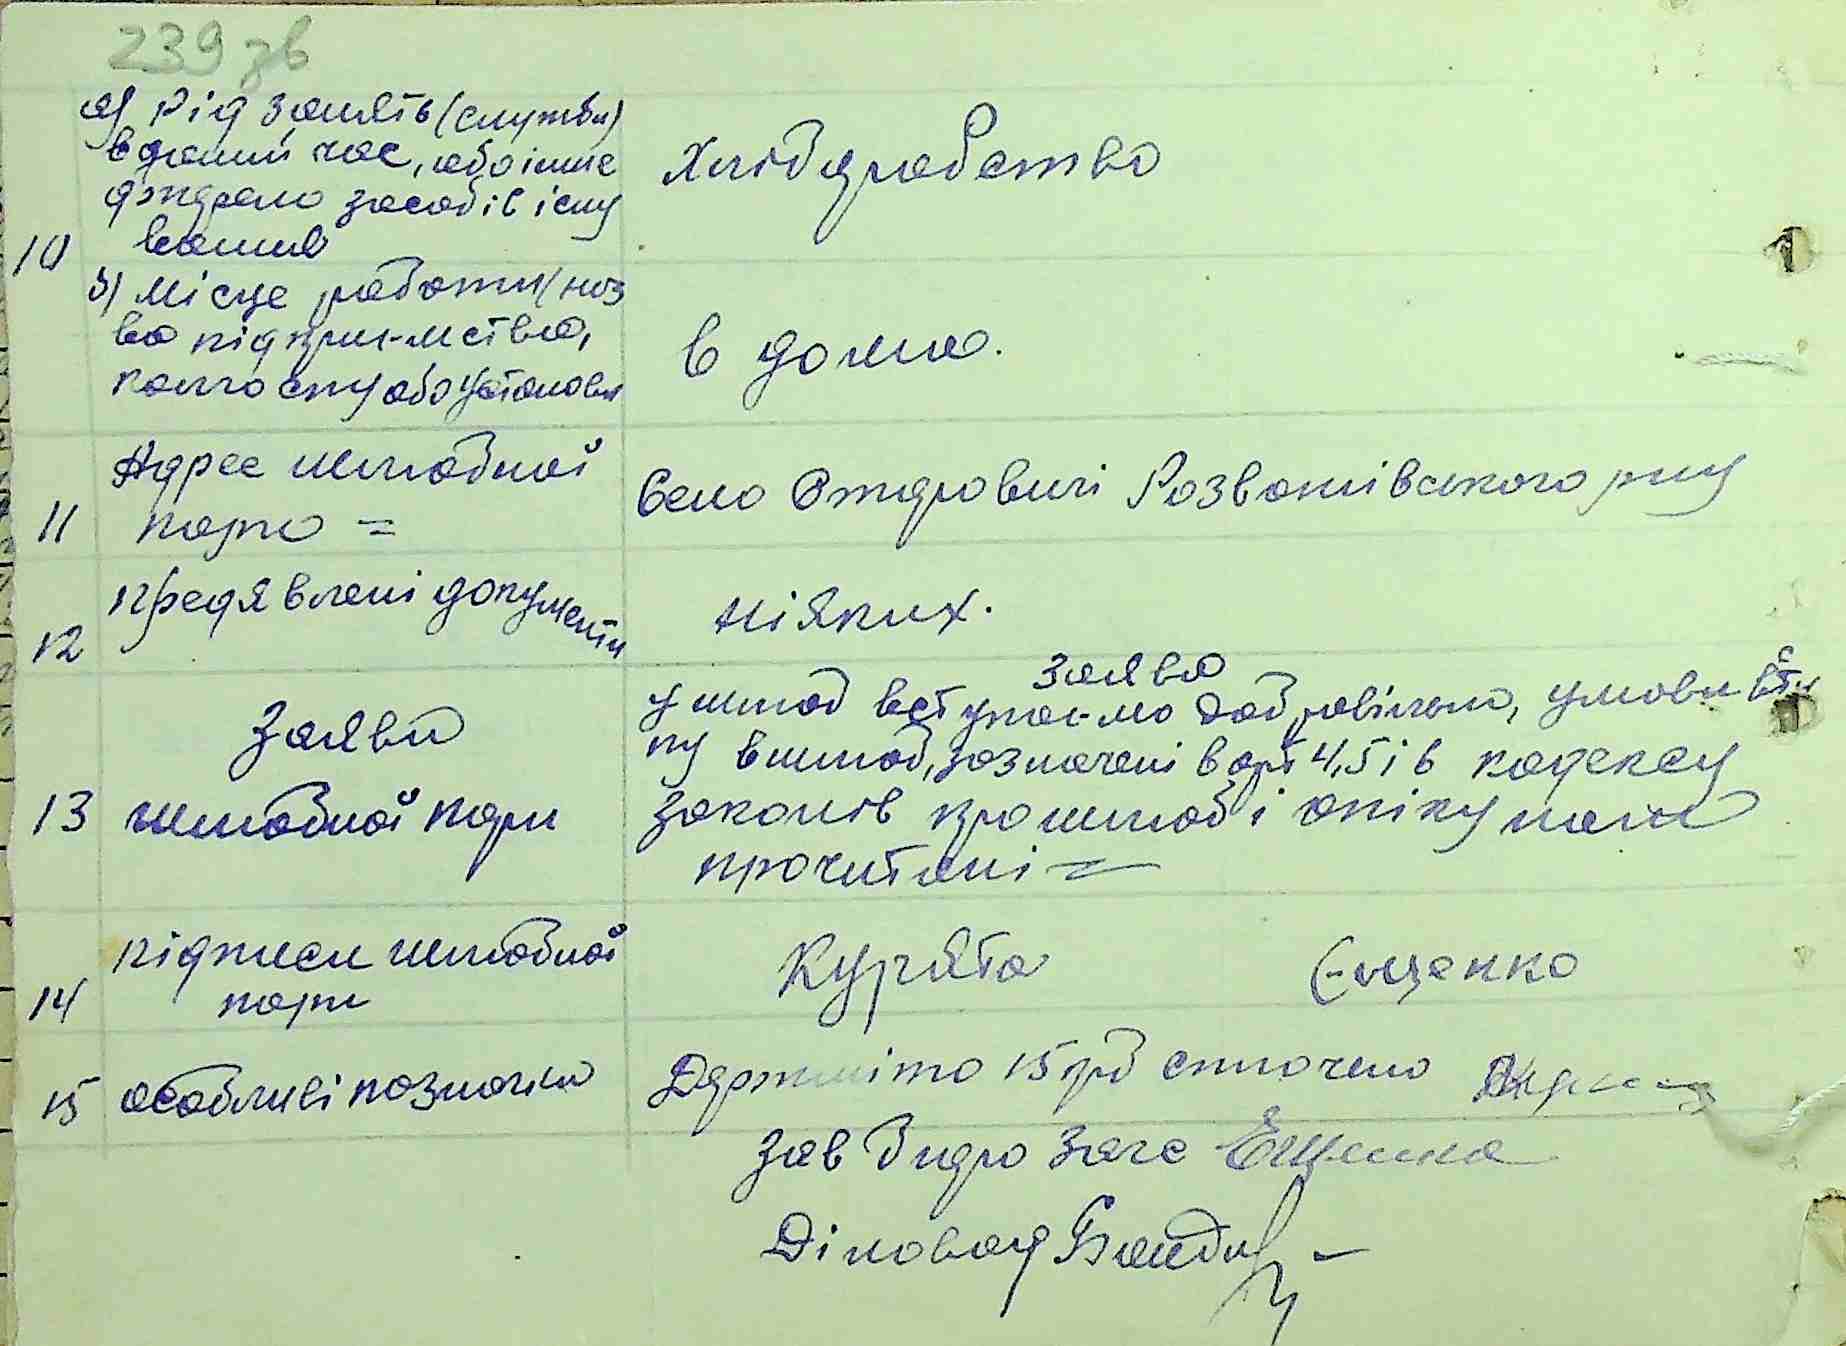 239 зв
а) Рід занять (служби)
в даний час, або інше
джерело засобів існу
вання
Хлібдробство
10
в) Місце работи (наз
ва підприємства,
колгоспу або установи
в дома.
11
Адрес шлюбної
пари =
Село Ождровичі Розважівського рну
12
предявлені документи
ніяких.
13
Заяви
шлюбної пари
Заява
у шлюб вступаємо добровільно, умови всту
пу в шлюб, зазначені в арт 4, 5 і 6 кодексу
законів про шлюб і опіку нам
прочитані =
14
підписи шлюбної
пари
Курята Єщенко
15
особливі позначки
Держмито 15 рб сплочено
Зав бюро Загс Єщенко
Діловод